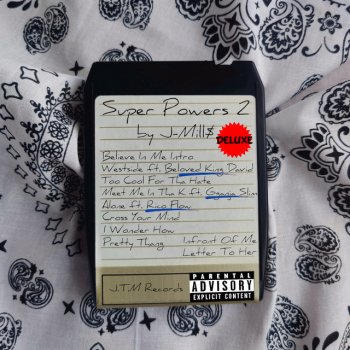 Super Powers 2
by J-Mill$
DELUXE
Believe In Me Intro
Westside ft. Beloved King David
Too Cool For Tha Hate
Meet Me In Tha K ft. Ggogie Slim
Alone ft. Rico Flow
Cross Your Mind
I Wonder How
Pretty Thang
Infront Of Me
Letter To Her
J.T.M Records
PARENTAL
ADVISORY
EXPLICIT CONTENT